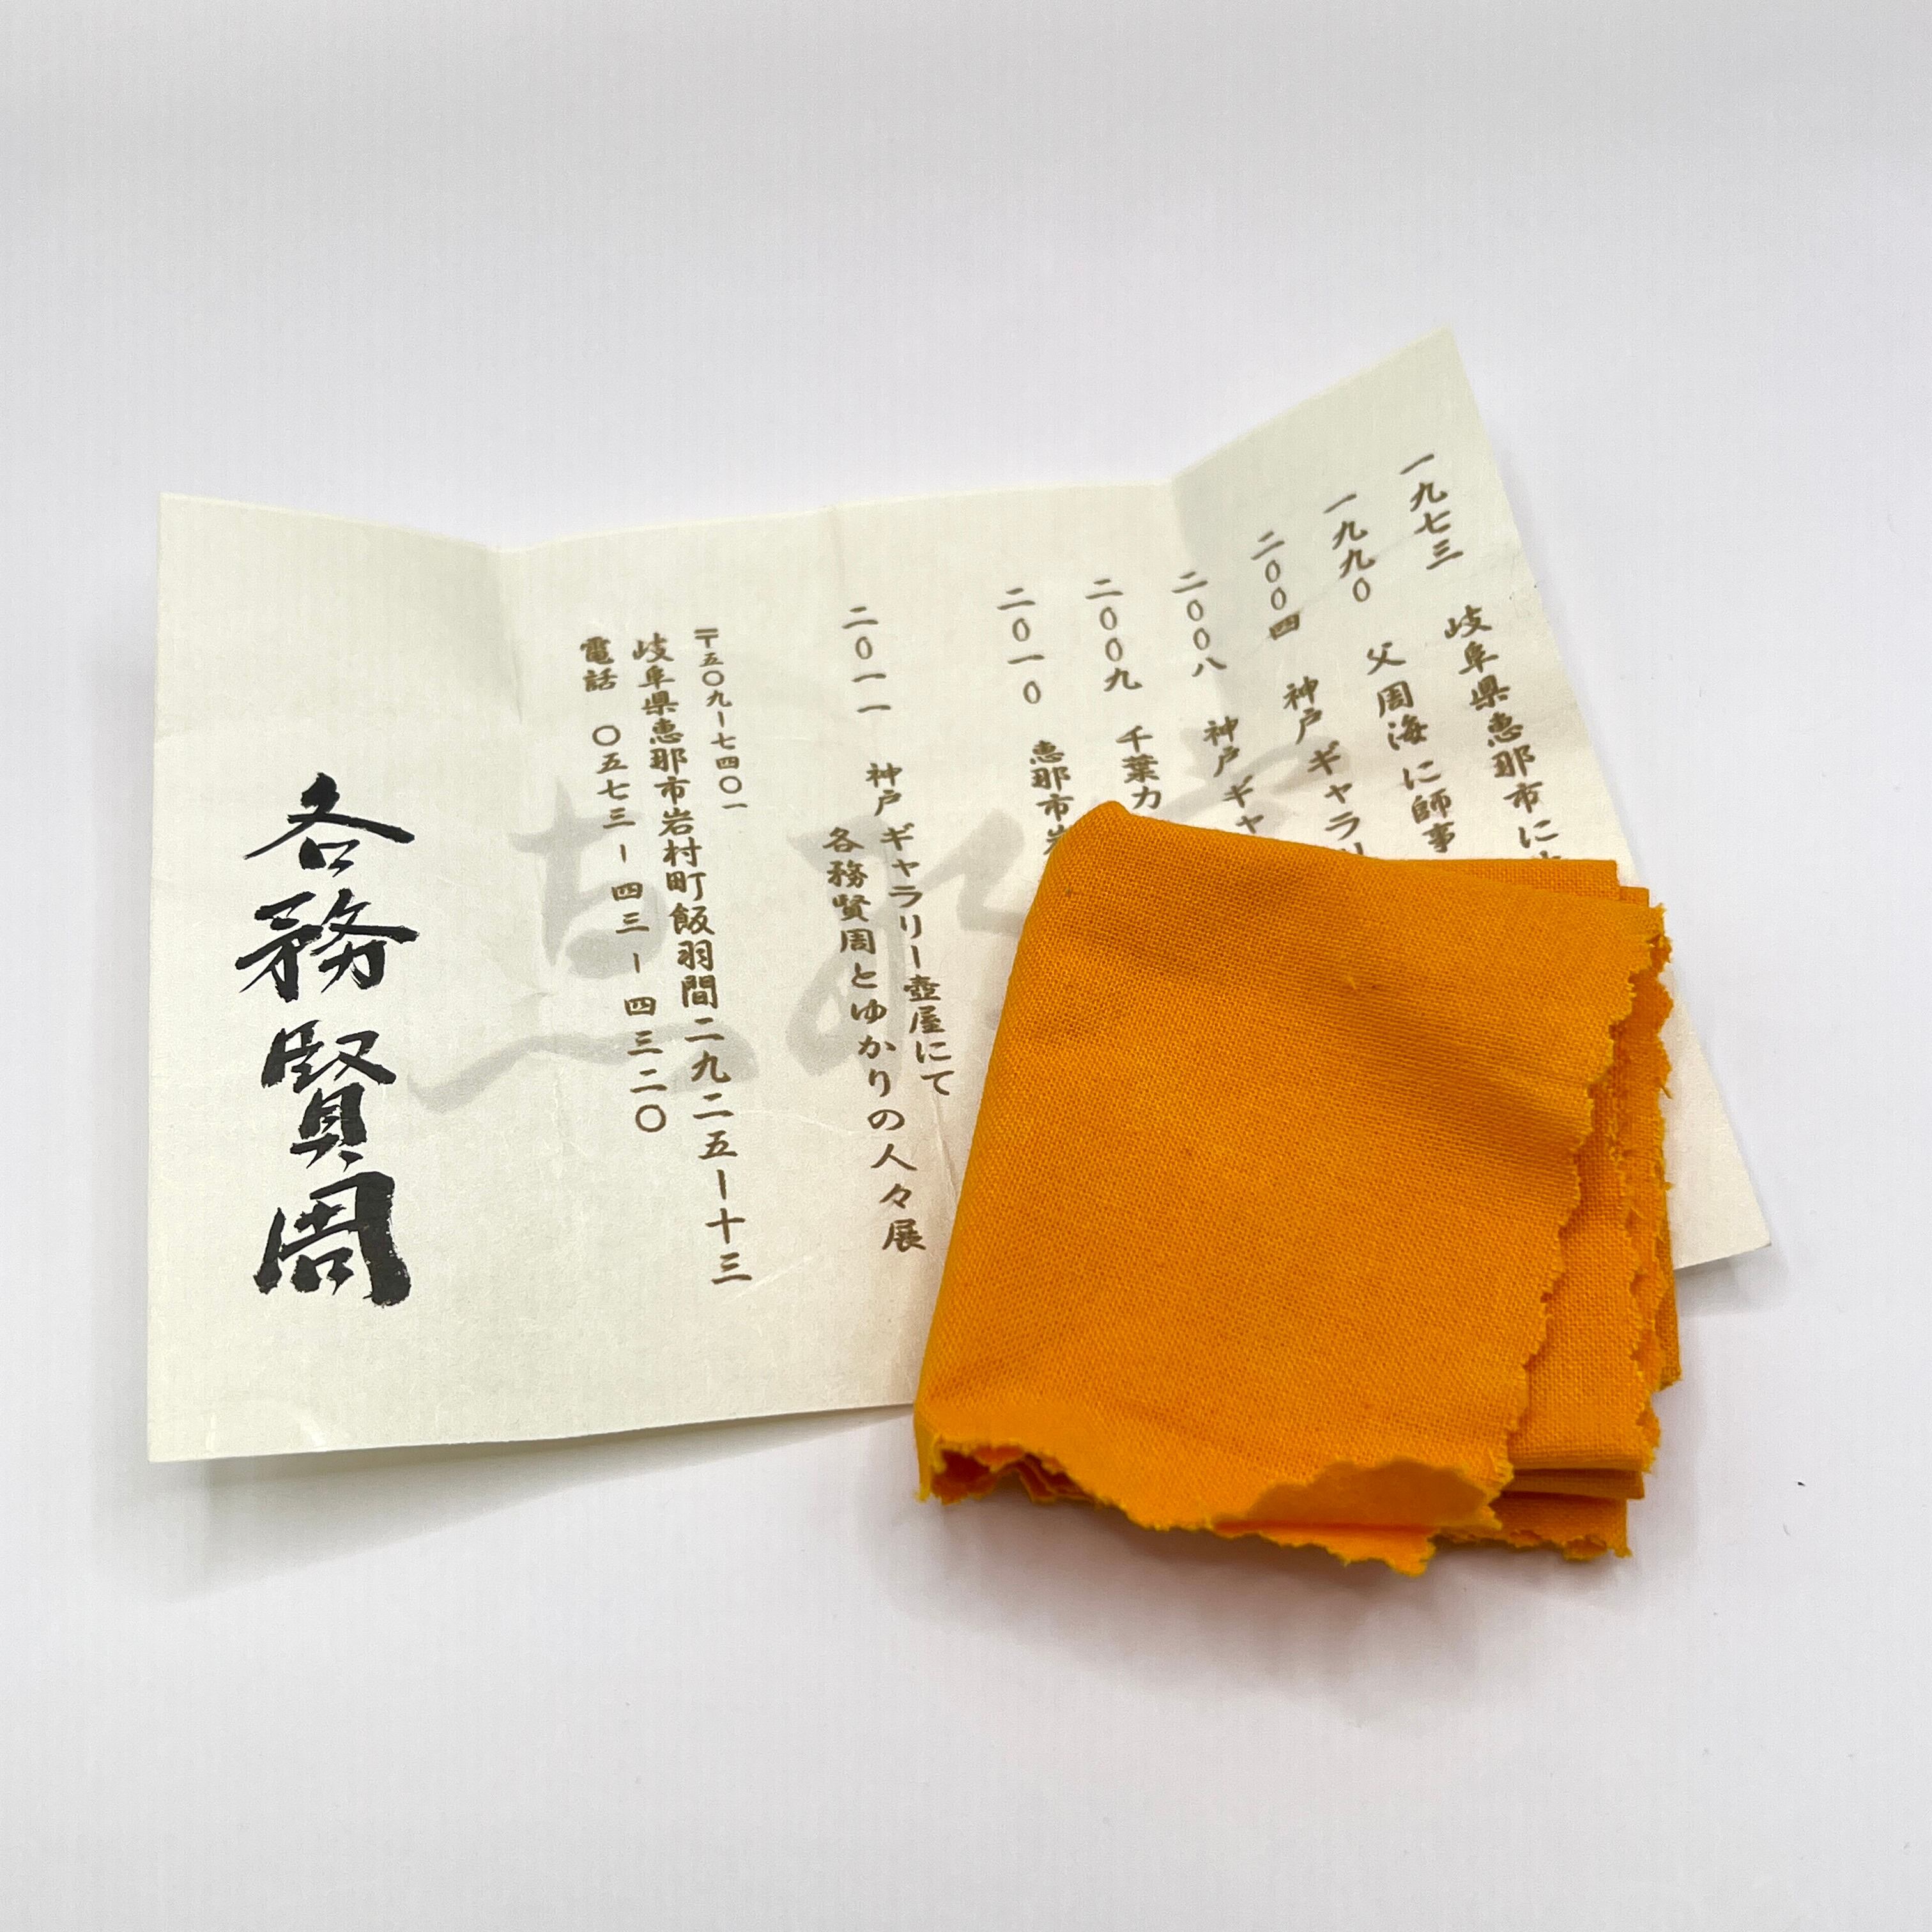 一九七三 岐阜県恵那市に
一九九〇 父周海に師事
二〇〇四 神戸ギャラリ
二〇〇八 神戸ギャ
二〇〇九 千葉カ
二〇一〇 恵那市岩
二〇一一 神戸ギャラリー壺屋にて
各務賢周とゆかりの人々展
〒五〇九ー七四〇一
岐阜県恵那市岩村町飯羽間二九二五ー十三
電話 〇五七三ー四三ー四三二〇
各務賢周